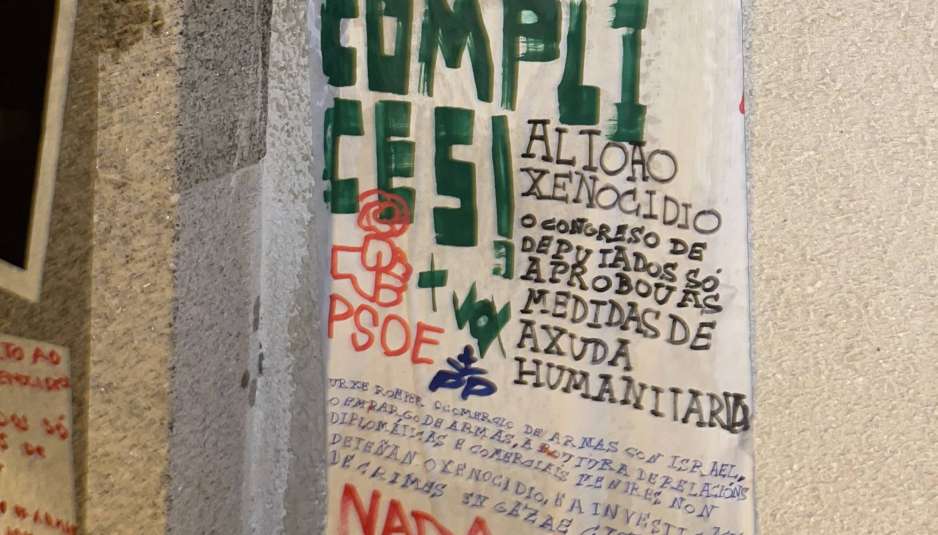 COMPLI
CES!
PSOE
+
VOX
+
PP
ALTO AO
XENOCIDIO
O CONGRESO DE
DEPUTADOS SÓ
APROBOU AS
MEDIDAS DE
AXUDA
HUMANITARIA
URXE ROMPER O COMERCIO DE ARMAS CON ISRAEL,
O EMBARGO DE ARMAS, A ROTURA DE RELACIÓNS
DIPLOMÁTICAS E COMERCIAIS
NON
DETEÑAN O XENOCIDIO, E A
DE CRIMES EN GAZA E
NADA
TO AO
SÓ
DE